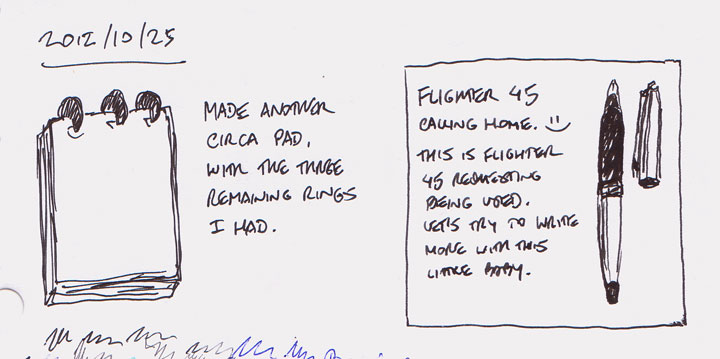 2012/10/25
MADE ANOTHER
CIRCA PAD,
WITH THE THREE
REMAINING RINGS
I HAD.
FLIGHTER 45
CALLING HOME. :)
THIS IS FLIGHTER
45 REQUESTING
BEING USED.
LET'S TRY TO WRITE
MORE WITH THIS
LITTLE BABY.